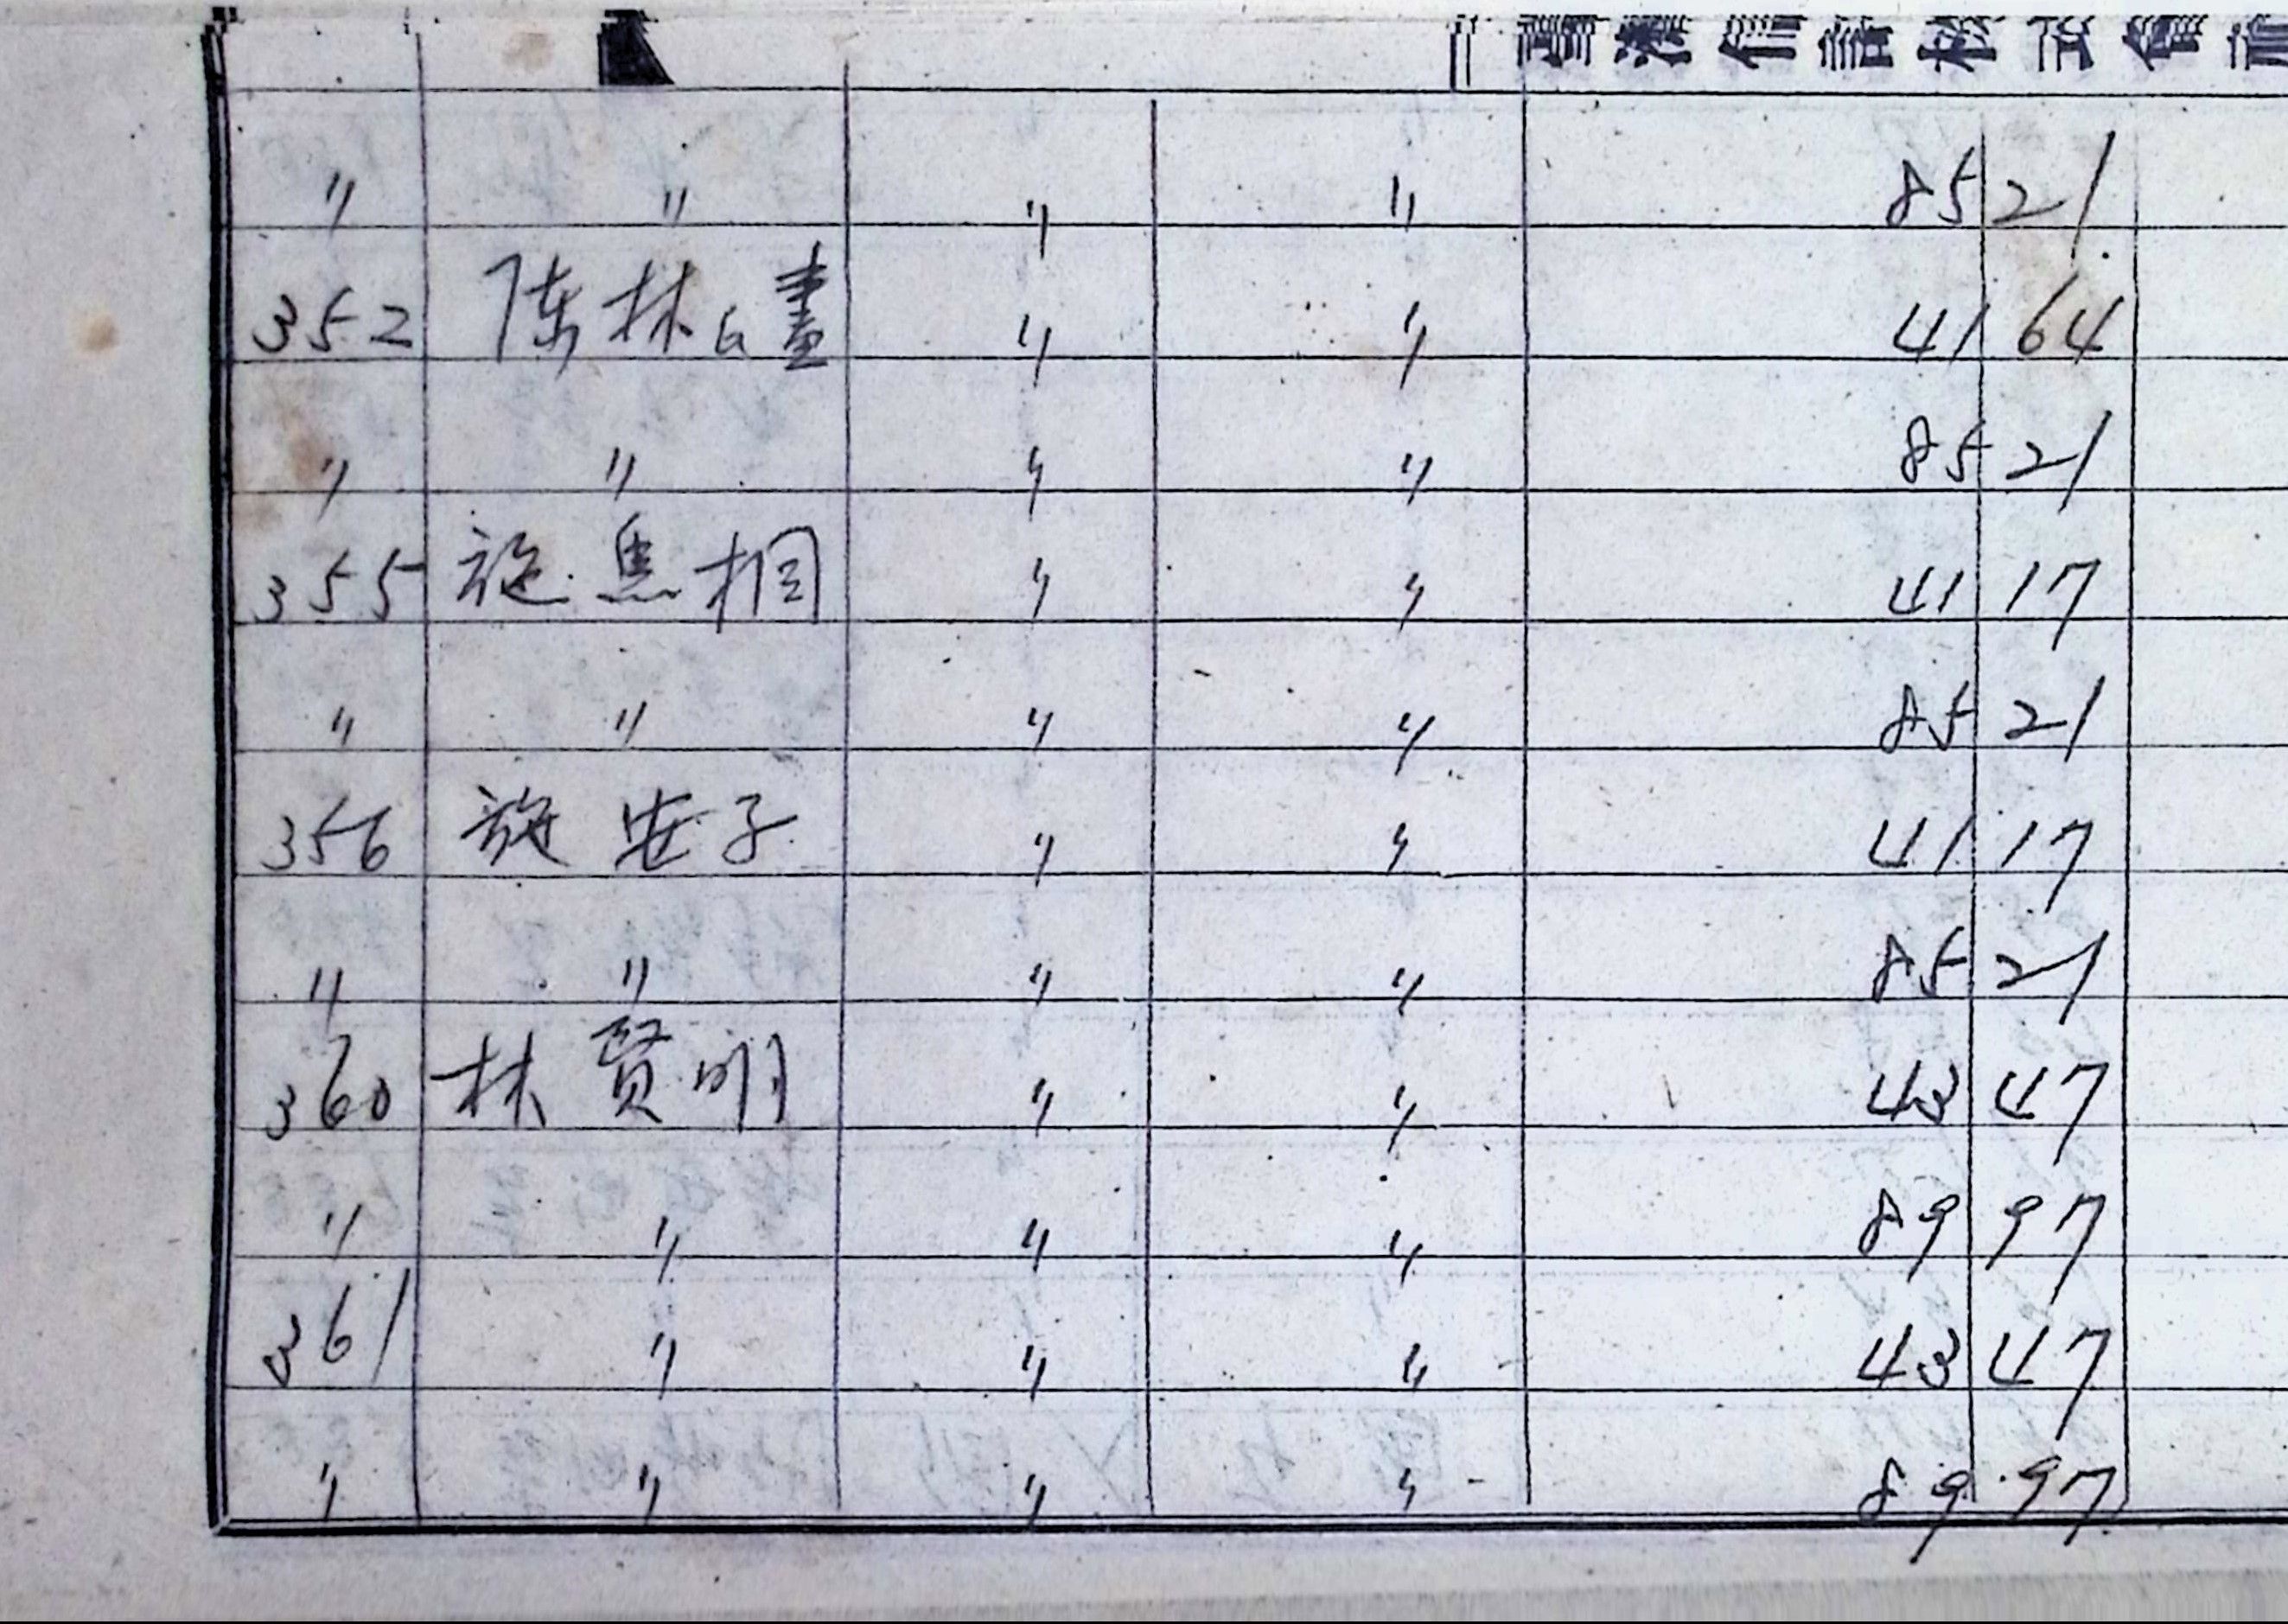 〃 〃 〃 〃 85 21
352 陳林 〃 〃 41 64
〃 〃 〃 〃 85 21
355 施 〃 〃 41 17
〃 〃 〃 〃 85 21
356 施 子 〃 〃 41 17
〃 〃 〃 〃 85 21
360 林賢明 〃 〃 43 47
〃 〃 〃 〃 89 97
361 〃 〃 〃 43 47
〃 〃 〃 〃 89 97